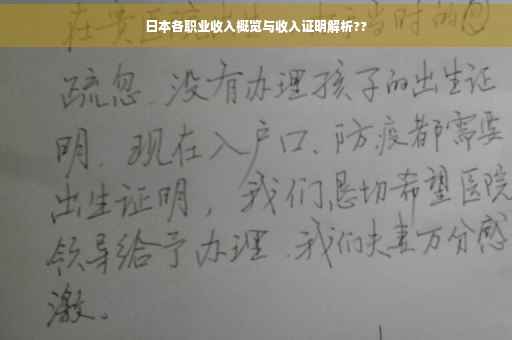 日本各职业收入概览与收入证明解析??
疏忽、没有办理孩子的出生证
明、现在入户口、防疫都需要
出生证明，我们恳切希望医院
领导给予办理、我们夫妻万分感
激。